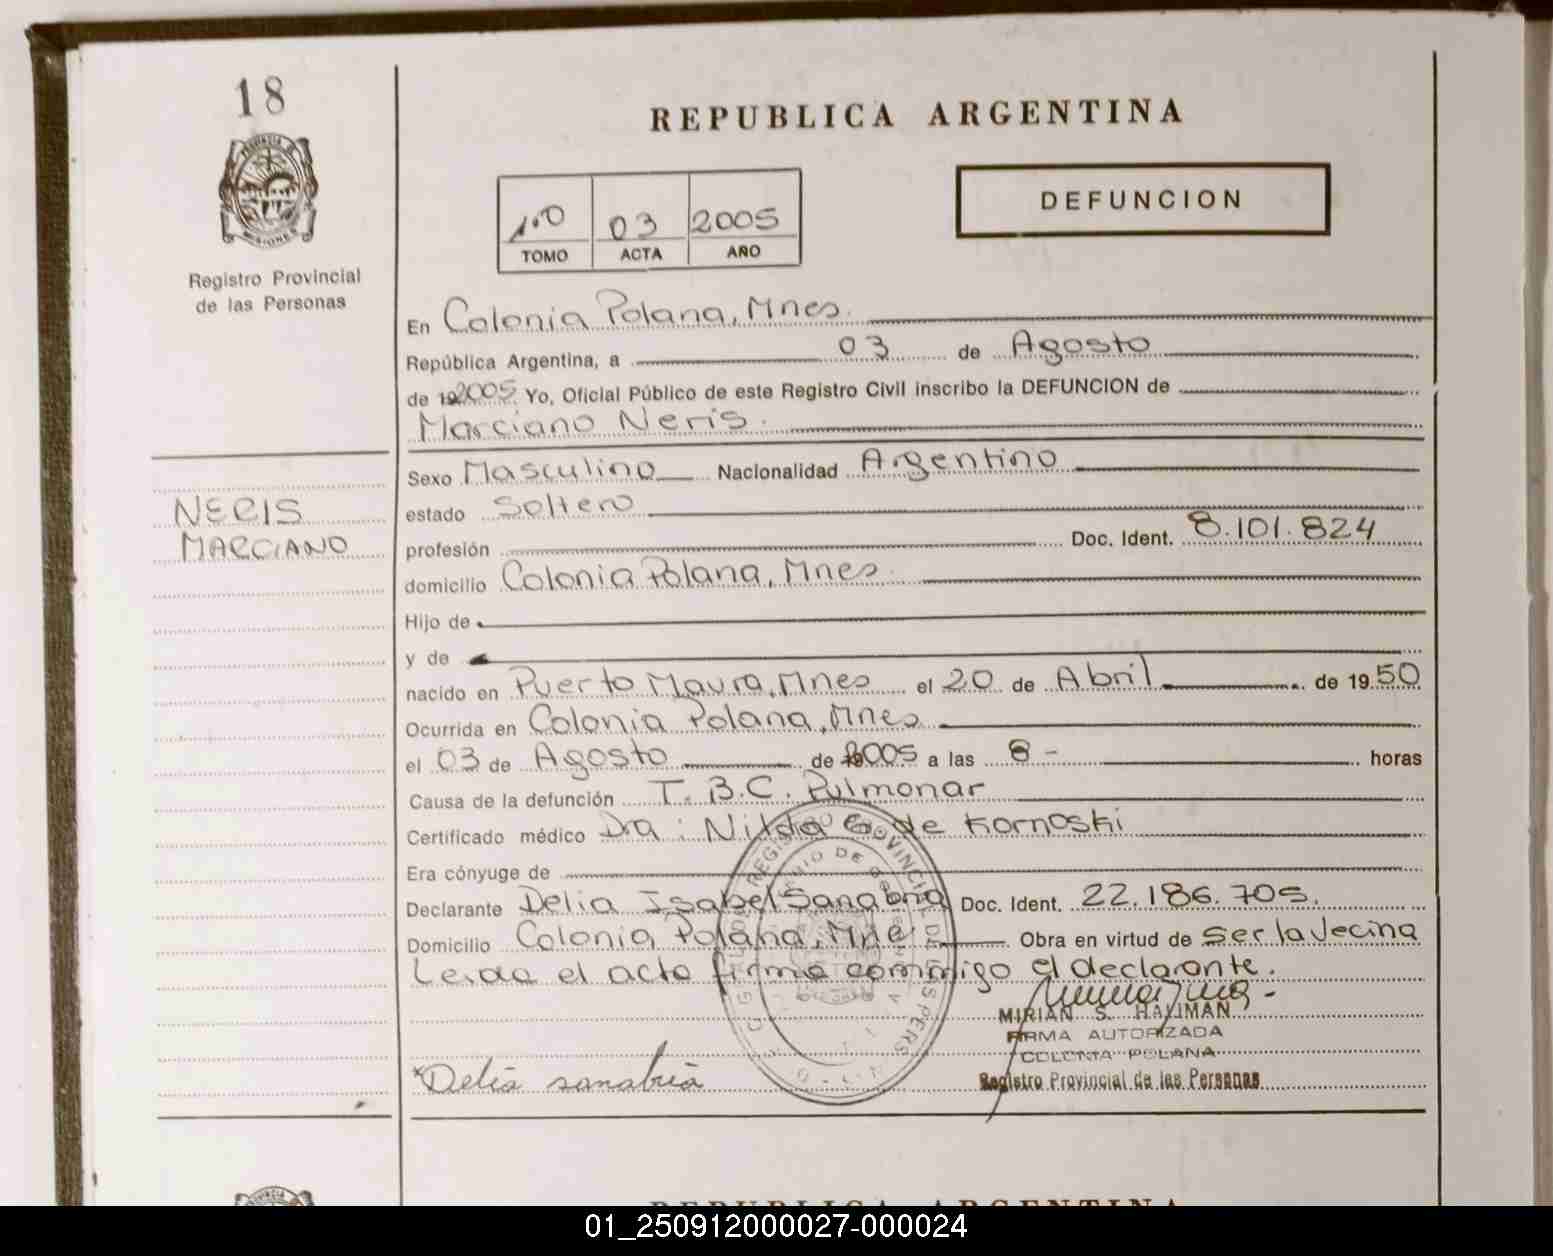 18
REPUBLICA ARGENTINA
DEFUNCION
1.º 03 2005
TOMO ACTA AÑO
Registro Provincial
de las Personas
En Colonia Polana, Mnes.
República Argentina, a 03 de Agosto
de 2005 Yo, Oficial Público de este Registro Civil inscribo la DEFUNCION de
Marciano Neris.
NERIS
MARCIANO
Sexo Masculino Nacionalidad Argentino
estado Soltero
profesión Doc. Ident. 8.101.824
domicilio Colonia Polana, Mnes.
Hijo de
y de
nacido en Puerto Maura, Mnes el 20 de Abril de 1950
Ocurrida en Colonia Polana, Mnes
el 03 de Agosto de 2005 a las 8 - horas
Causa de la defunción T. B. C. Pulmonar
Certificado médico Dra: Nilda G. de Kornoski
Era cónyuge de
Declarante Delia Isabel Sanabria Doc. Ident. 22.186.705.
Domicilio Colonia Polana, Mne Obra en virtud de Ser la Vecina
Leida el acta firma commigo el declarante.
MIRIAN S. HAYIMAN
FIRMA AUTORIZADA
COLONIA POLANA
Registro Provincial de las Personas
Delia sanabria
REPUBLICA ARGENTINA
01_250912000027-000024